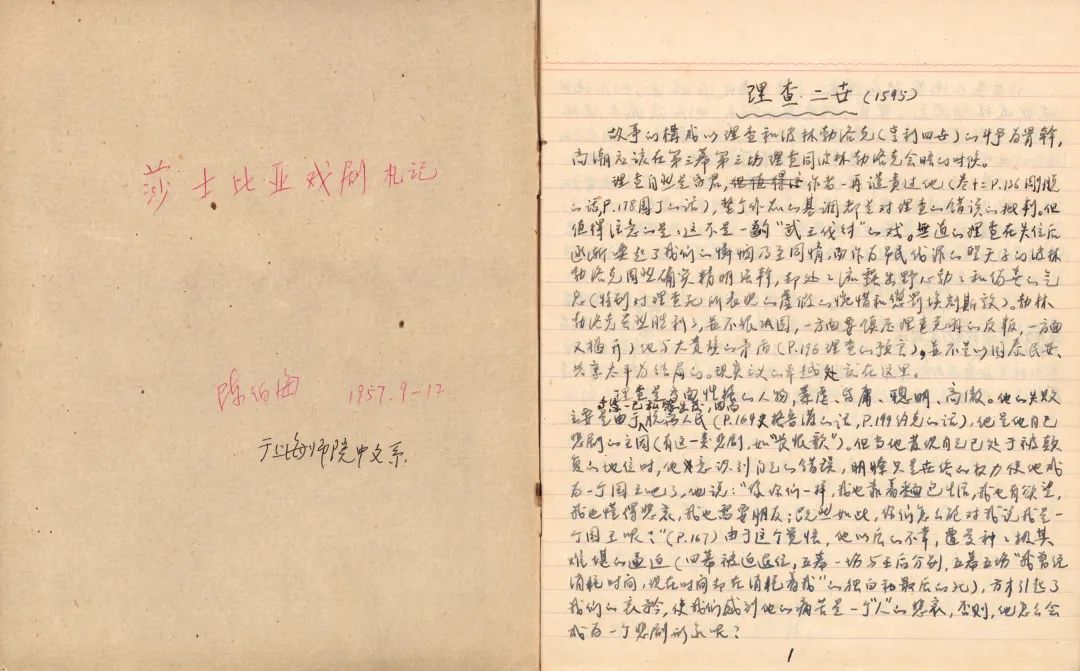 莎士比亚戏剧札记
陈伯海 1957.9-12
于上海师院中文系
理查二世(1595)
故事的構成以理查和波林勃洛克(亨利四世)的鬥争为骨幹,
高潮应该在第三幕第三场理查同波林勃洛克会晤的时候。
理查自然是昏君,但值得注作者一再谴责过他(卷十二P.136
的话,P.178园丁的话),整个作品的基调都是对理查的错误的批判。但
值得注意的是:这不是一齣“武王伐纣”的戏。無道的理查在失位后
逐渐要起了我们的憐悯乃至同情,而作为吊民伐罪的聖天子的波林
勃洛克固然确实精明强幹,却处处流露出野心勃勃和伪善的气
息(特别对理查死所表现的虚假的惋惜和惩罚埃克斯敦)。勃林
勃洛克虽然胜利了,並不很巩固,一方面要镇压理查党羽的反叛,一方面
又揭开了他与大贵族的矛盾(P.196理查的预言),並不是以国泰民安、
共享太平为结局的。现实主义的卓越处就在这里。
理查是多面性格的人物,暴虐、昏庸、聪明、高傲。他的失败
主要是由于脱离人民(P.164史格鲁潑的话,P.199约克的话),他是他自己
悲剧的主因(有这一类悲剧,如“长恨歌”)。但当他发现自己已处于被颠
复的地位时,他意识到自己的错误,明瞭只是在位的权力使他成
为一个国王吧了,他说:“像你们一样,我也靠着麵包生活,我也有欲望,
我也懂得悲哀,我也需要朋友;既然如此,你们怎么能对我说我是一
个国王呢?”(P.167)由于这个觉悟,他以后的不幸,遭受种种极其
难堪的逼迫(四幕被迫退位,五幕一场与王后分别,五幕五场“我曾经
消耗时间,现在时间却在消耗着我”的独白和最后的死),方才引起了
我们的哀矜,使我们感到他的痛苦是一个“人”的悲哀,否则,他怎么会
成为一个悲剧形象呢?
1